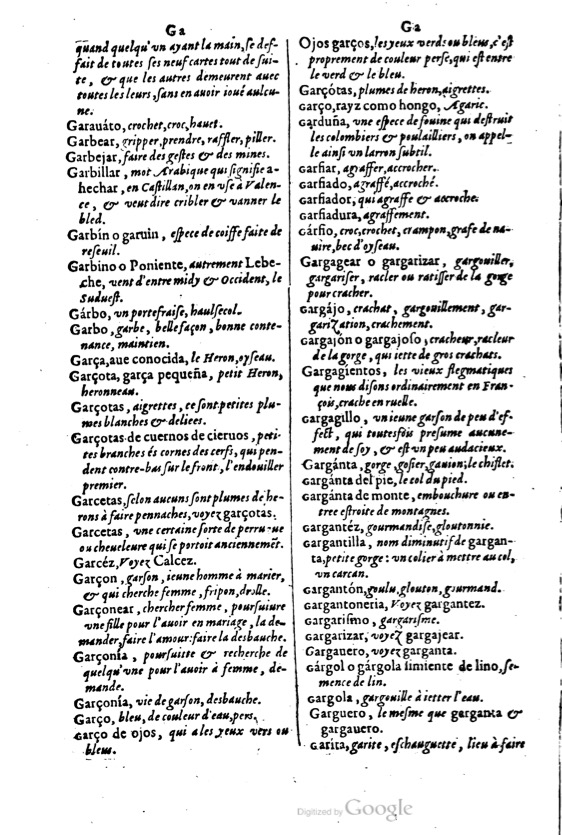 Ga
quand quelqu'vn ayant la main, se def-
fait de toutes ses neuf cartes tout de sui-
te, & que les autres demeurent auec
toutes les leurs, sans en auoir ioué aulcu-
ne.
Garauáto, crochet, croc, hauet.
Garbear, gripper, prendre, raffler, piller.
Garbejar, faire des gestes & des mines.
Garbillar, mot Arabique qui signifie a-
hechar, en Castillan, on en vse à Valen-
ce, & veut dire cribler & vanner le
bled.
Garbín o garuin, espece de coiffe faite de
reseuil.
Garbino o Poniente, autrement Lebe-
che, vent d'entre midy & Occident, le
Suduest.
Gárbo, vn portefraise, haulsecol.
Garbo, garbe, belle façon, bonne conte-
nance, maintien.
Garça, aue conocida, le Heron, oyseau.
Garçota, garça pequeña, petit Heron,
heronneau.
Garçotas, aigrettes, ce sont petites plu-
mes blanches & deliees.
Garçotas de cuernos de cieruos, peti-
tes branches és cornes des cerfs, qui pen-
dent contre-bas sur le front, l'endouiller
premier.
Garcetas, selon aucuns sont plumes de he-
rons à faire pennaches, voyez garçotas.
Garcetas, vne certaine sorte de perruque
ou cheueleure qui se portoit anciennemēt.
Garcéz, Voyez Calcez.
Garçon, garson, ieune homme à marier,
& qui cherche femme, fripon, drolle.
Garçonear, chercher femme, poursuiure
vne fille pour l'auoir en mariage, la de-
mander, faire l'amour: faire la desbauche.
Garçonía, poursuitte & recherche de
quelqu'vne pour l'auoir à femme, de-
mande.
Garçonía, vie de garson, desbauche.
Garço, bleu, de couleur d'eau, pers.
Garço de ojos, qui a les yeux vers ou
bleus.
Ga
Ojos garços, les yeux verds ou bleus, c'est
proprement de couleur perse, qui est entre
le verd & le bleu.
Garçótas, plumes de heron, aigrettes.
Garço, rayz como hongo, Agaric.
Garduña, vne espece de fouine qui destruit
les colombiers & poulailliers, on appel-
le ainsi vn larron subtil.
Garfiar, agraffer, accrocher.
Garfiado, agraffé, accroché.
Garfiador, qui agraffe & accroche.
Garfiadura, agraffement.
Gárfio, croc, crochet, crampon, grafe de na-
uire, bec d'oyseau.
Gargagear o gargarizar, gargouiller,
gargariser, racler ou ratisser de la gorge
pour cracher.
Gargájo, crachat, gargouillement, gar-
garization, crachement.
Gargajón o gargajoso, cracheur, racleur
de la gorge, qui iette de gros crachats.
Gargagientos, les vieux flegmatiques
que nous disons ordinairement en Fran-
çois, crache en ruelle.
Gargagillo, vn ieune garson de peu d'ef-
fect, qui toutesfois presume aucune-
ment de soy, & est vn peu audacieux.
Gargánta, gorge, gosier, gauion; le chiflet.
Gargánta del pie, le col du pied.
Gargánta de monte, embouchure ou en-
tree estroite de montagnes.
Gargantéz, gourmandise, gloutonnie.
Gargantilla, nom diminutif de gargan-
ta, petite gorge: vn colier à mettre au col,
vn carcan.
Gargantón, goulu, glouton, gourmand.
Gargantoneria, Voyez gargantez.
Gargarismo, gargarisme.
Gargarizar, voyez gargajear.
Gargauero, voyez garganta.
Gárgol o gárgola simiente de lino, se-
mence de lin.
Gargola, gargouille à ietter l'eau.
Garguero, le mesme que garganta &
gargauero.
Garita, garite, eschauguette, lieu à faire
Digitized by Google